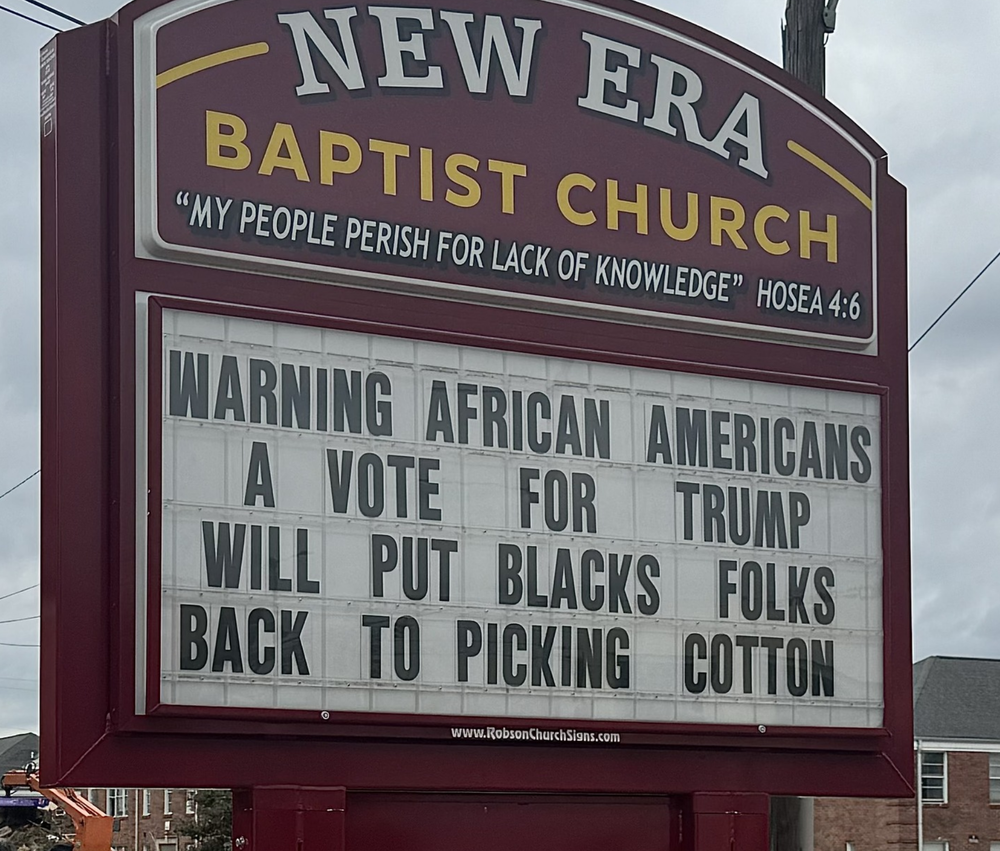 NEW ERA
BAPTIST CHURCH
“MY PEOPLE PERISH FOR LACK OF KNOWLEDGE” HOSEA 4:6
WARNING AFRICAN AMERICANS
A VOTE FOR TRUMP
WILL PUT BLACKS FOLKS
BACK TO PICKING COTTON
www.RobsonChurchSigns.com